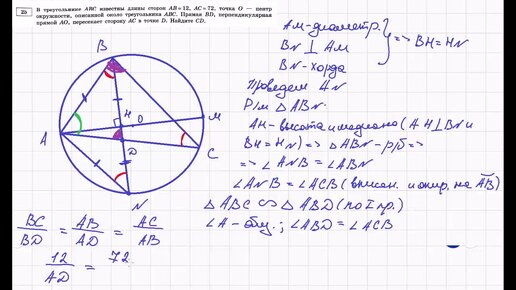 25
В треугольнике ABC известны длины сторон AB=12, AC=72, точка O — центр
окружности, описанной около треугольника ABC. Прямая BD, перпендикулярная
прямой AO, пересекает сторону AC в точке D. Найдите CD.
AM-диаметр.
BN ⊥ AM
BN-хорда
} => BH=HN
Проведем AN
Р/м △ABN:
AH-высота и медиана (AH⊥BN и
BH=HN) => △ABN-р/б =>
=> ∠ANB = ∠ABN
∠ANB = ∠ACB (вписан. и опир. на AB)
△ABC ∽ △ABD (по I пр.)
∠A-общ.; ∠ABD = ∠ACB
B
H
O
M
A
D
C
N
BC/BD = AB/AD = AC/AB
12/AD = 72